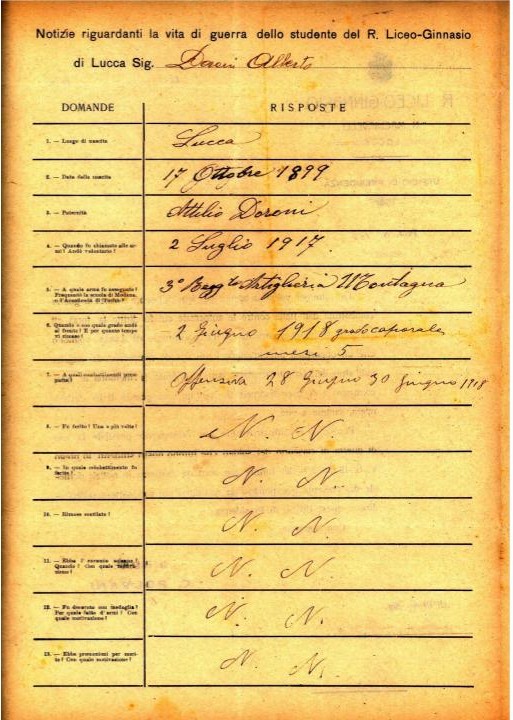 Notizie riguardanti la vita di guerra dello studente del R. Liceo-Ginnasio
di Lucca Sig. Doroni Alberto
DOMANDE RISPOSTE
1. — Luogo di nascita Lucca
2. — Data della nascita 17 Ottobre 1899
3. — Paternità Attilio Doroni
4. — Quando fu chiamato alle armi? Andò volontario? 2 Luglio 1917
5. — A quale arma fu assegnato? 3° Regg.to Artiglieria Montagna
Frequentò la scuola di Modena,
o l'Accademia di Torino?
6. — Quando e con quale grado andò 2 Giugno 1918 grado caporale
al fronte? E per quanto tempo mesi 5
vi rimase?
7. — A quali combattimenti prese Offensiva 28 Giugno 30 Giugno 1918
parte?
8. — Fu ferito? Una o più volte? N. N.
9. — In quale combattimento fu N. N.
ferito?
10. — Rimase mutilato? N. N.
11. — Ebbe l' encomio solenne? N. N.
Quando? Con quale motivazione?
12. — Fu decorato con medaglia? N. N.
Per quale fatto d'armi? Con
quale motivazione?
13. — Ebbe promozioni per merito? Con quale motivazione? N. N.